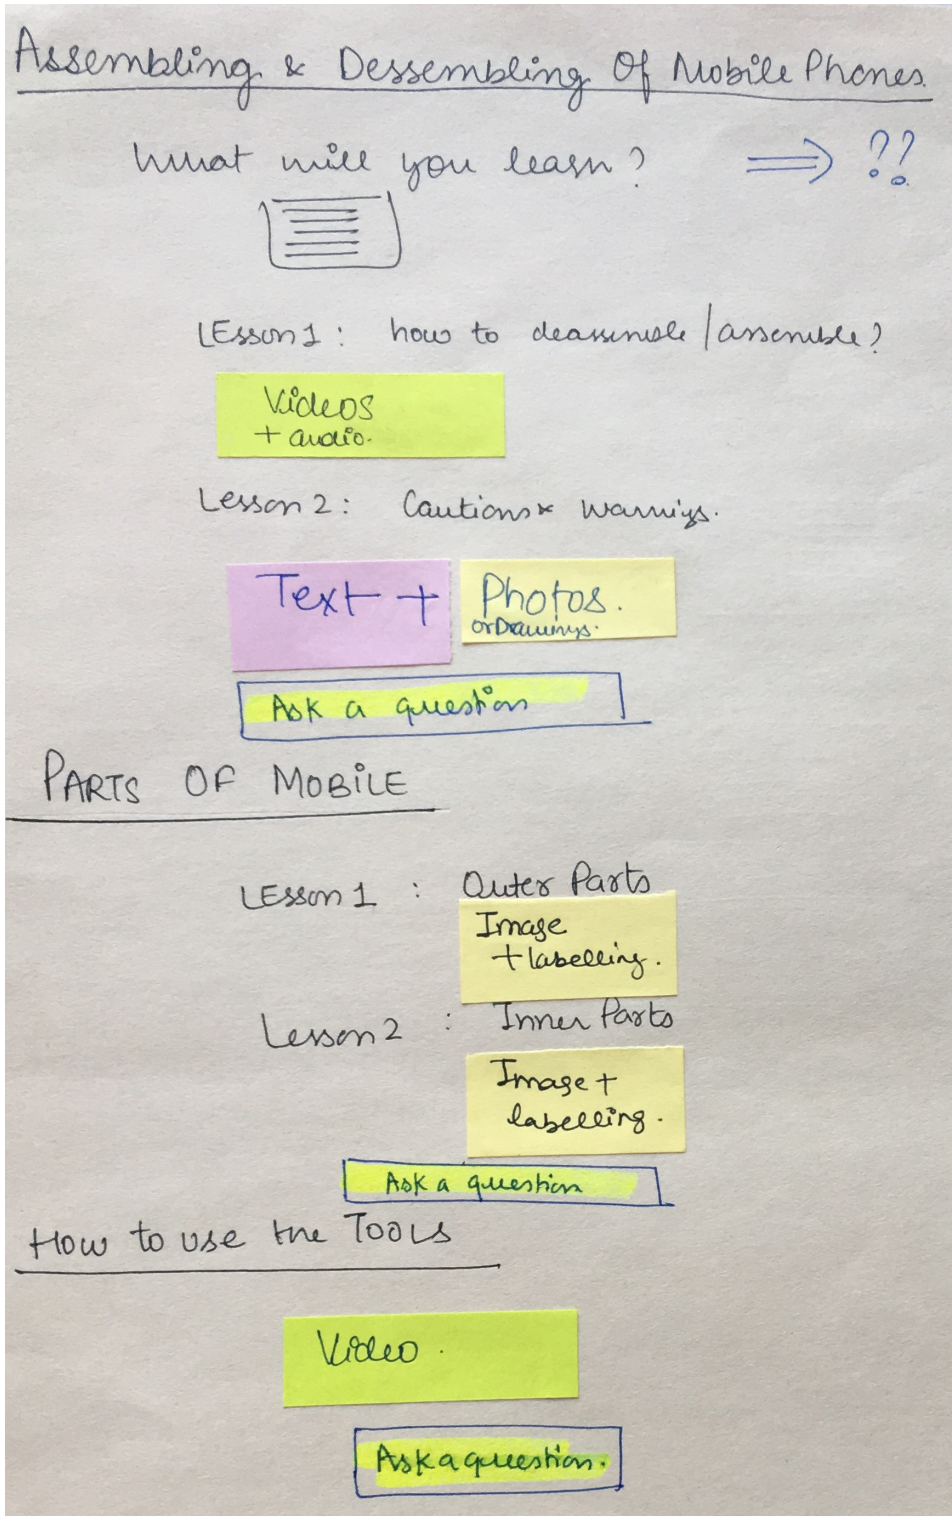 Assembling & Dessembling Of Mobile Phones.
What will you learn? ⇒ ??
LEsson 1 : how to deassemble / assemble?
Videos
+ audio.
Lesson 2 : Cautions & Warnings.
Text + Photos.
or Drawings.
Ask a question
PARTS OF MOBILE
LEsson 1 : Outer Parts
Image
+ labelling.
Lesson 2 : Inner Parts
Image +
labelling.
Ask a question
How to use the Tools
Video.
Ask a question.